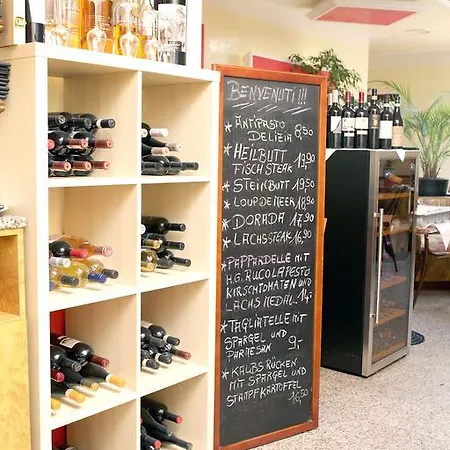 BENVENUTI!!!
*ANTIPASTO 8,50
DELIZIA
*HEILBUTT 19,90
FISCHSTEAK
*STEINBUTT 19,50
*LOUP DE MEER 18,90
*DORADA 17,90
*LACHSSTEAK 16,90
*PAPPARDELLE MIT
H.G. RUCOLAPESTO
KIRSCHTOMATEN UND
LACHS MEDAL. 14,-
*TAGLIATELLE MIT
SPARGEL UND
PARMESAN 9,-
*KALBSRÜCKEN
MIT SPARGEL UND
STAMPFKARTOFFEL
16,50